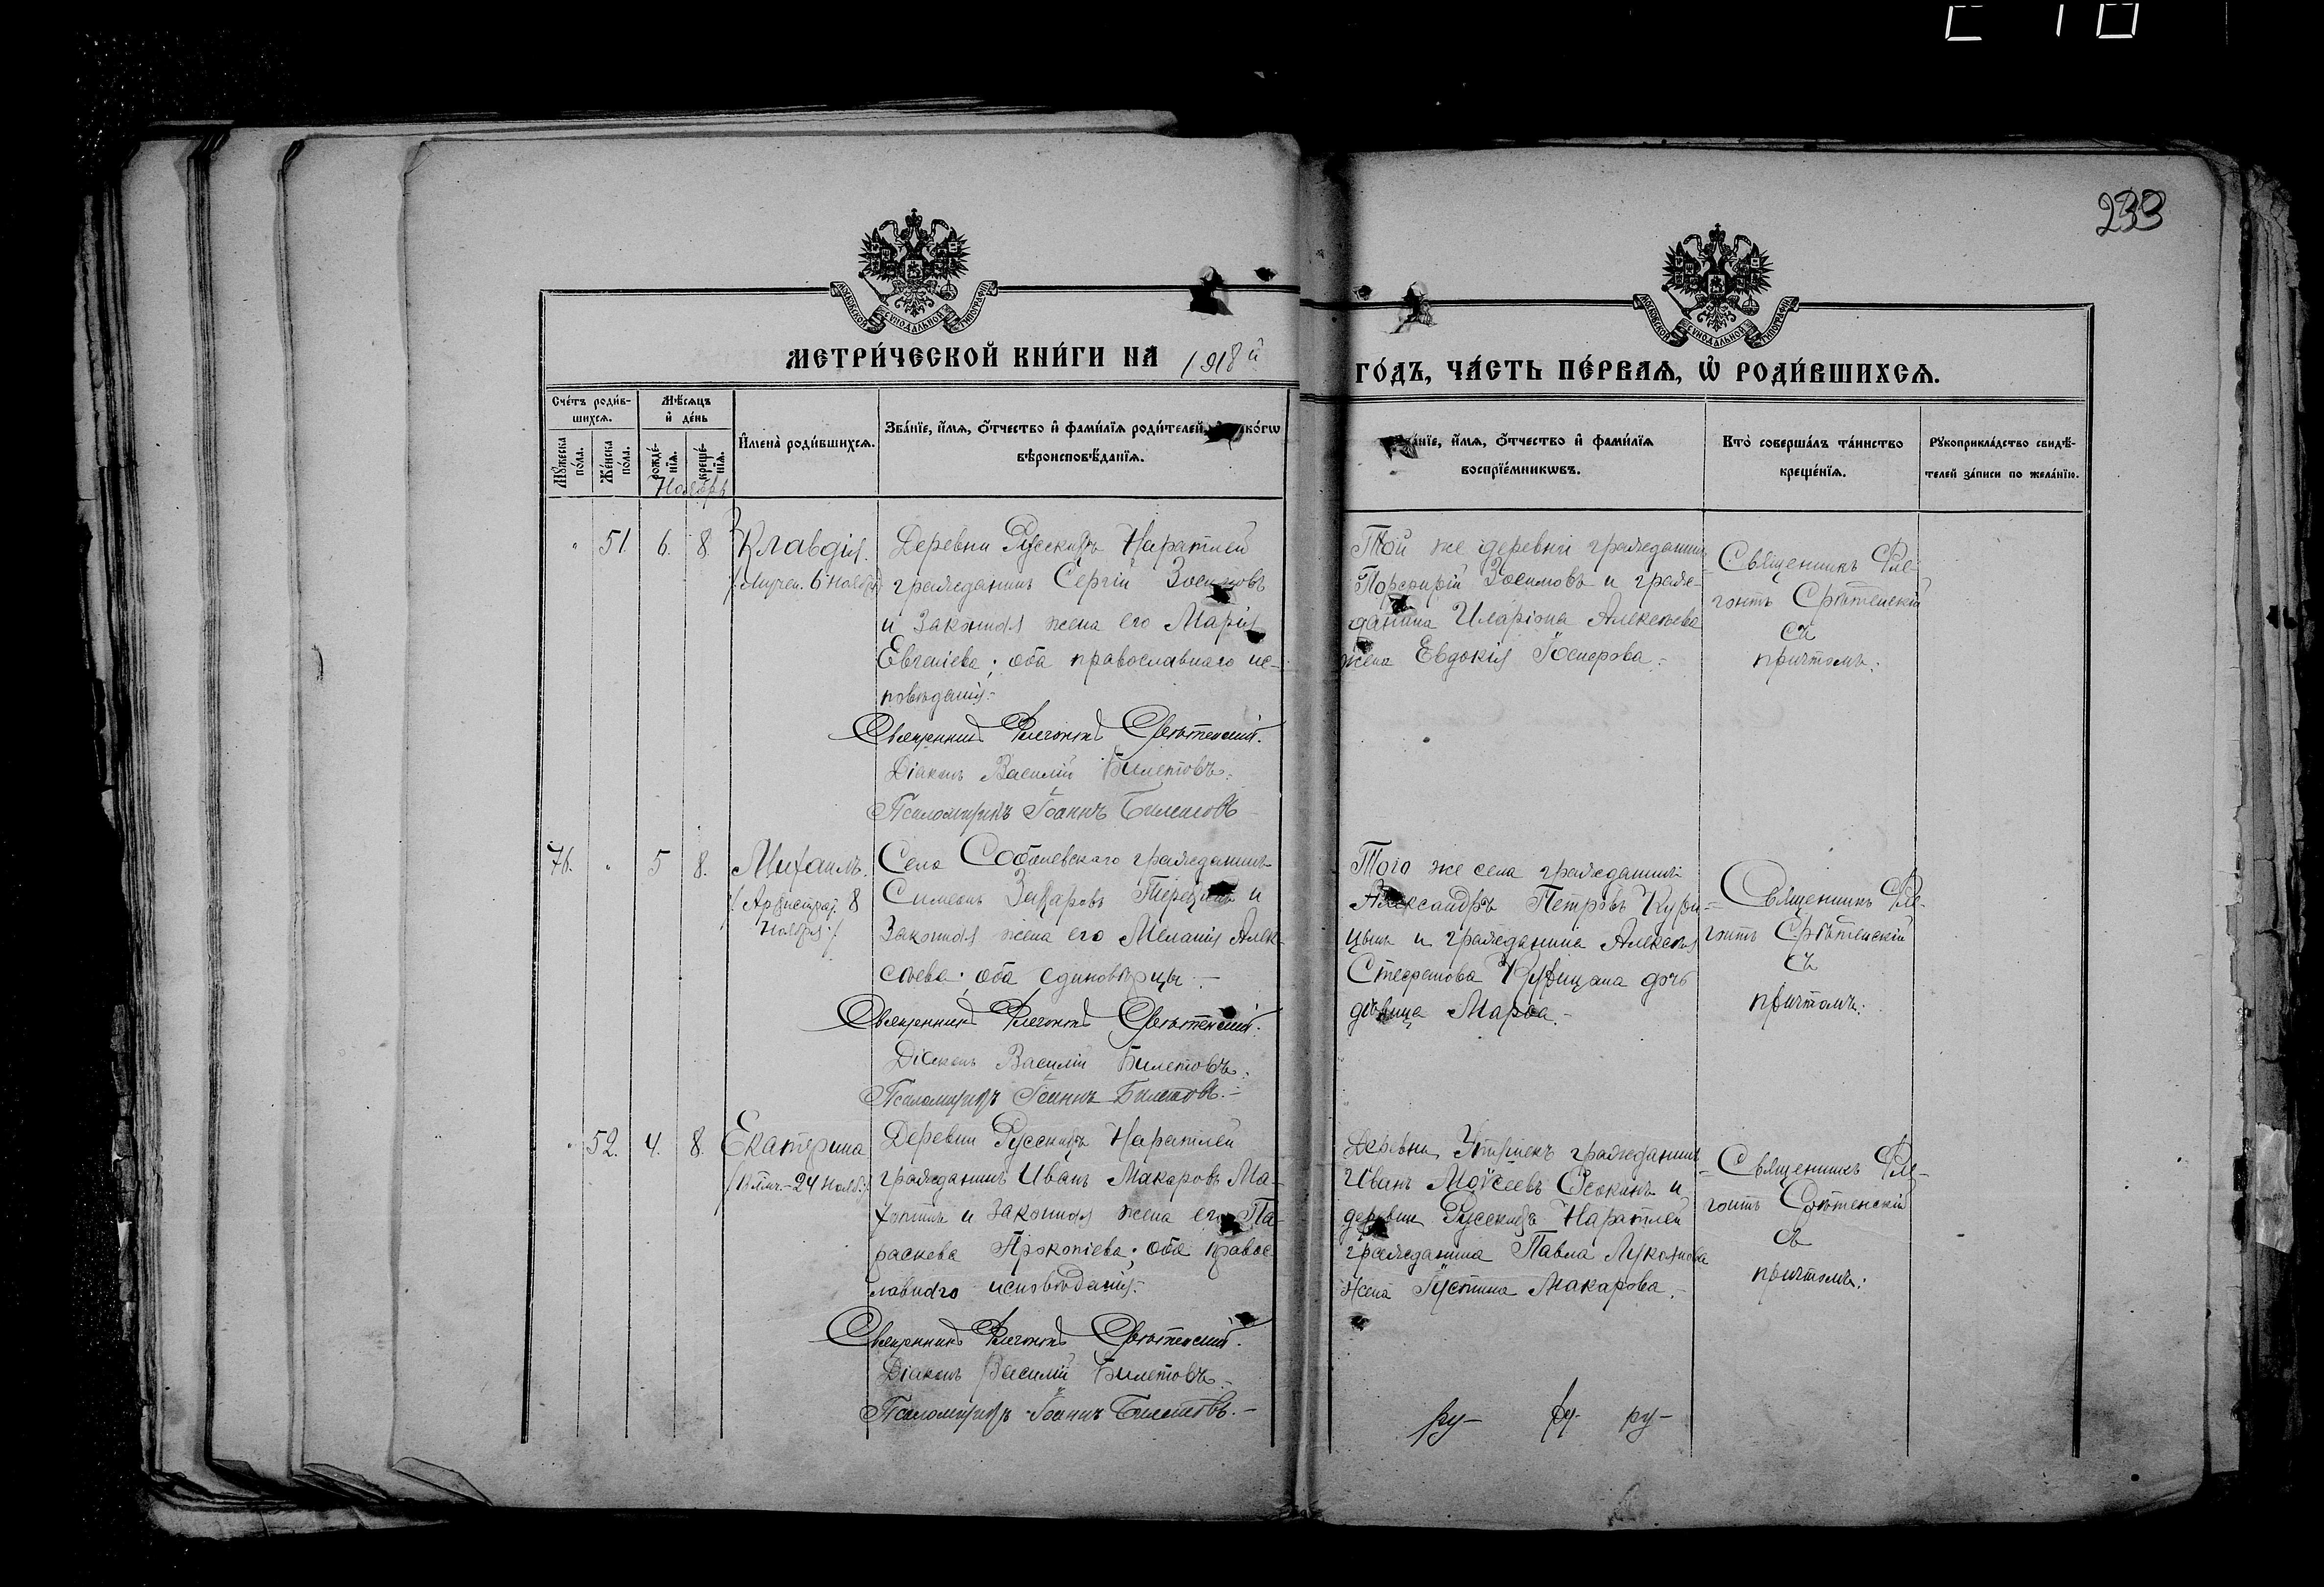 233
МОСКОВСКОЙ СѴНОДАЛЬНОЙ ТИПОГРАФІИ
МОСКОВСКОЙ СѴНОДАЛЬНОЙ ТИПОГРАФІИ
МЕТРИ́ЧЕСКОЙ КНИ́ГИ НА 1918й
ГО́ДЪ, ЧА́СТЬ ПЕ́РВАѦ, Ѡ҆ РОДИ́ВШИХСѦ.
Сче́тъ роди́в-
шихсѧ.
Мѣ́сѧцъ
и҆ де́нь
Мꙋ́жеска
по́ла.
Же́нска
по́ла.
рожде́-
нїѧ.
креще́-
нїѧ.
Ноябрь
И҆мена̀ роди́вшихсѧ.
Зва́нїе, и҆́мѧ, ѻ҆́тчество и҆ фами́лїѧ роди́телей, ко́гѡ
вѣроисповѣ́данїѧ.
и҆́мѧ, ѻ҆́тчество и҆ фами́лїѧ
воспрїе́мникѡвъ.
Кто̀ соверша́лъ та́инство
креще́нїѧ.
Рꙋкоприкла́дство свидѣ́-
телей за́писи по жела́нїю.
" 51. 6. 8. Клавдія.
/Мучен. 6 Ноября/
Деревни Русскихъ Наратлей
гражданинъ Сергій Зосимовъ
и законная жена его Марія
Евгеніева; оба православнаго ис-
повѣданія.-
Священникъ Флегонтъ Срѣтенскій.
Діаконъ Василій Билетовъ.
Псаломщикъ Іоаннъ Билетовъ
Той же деревни гражданинъ
Порфирій Зосимовъ и граж-
данина Иларіона Алексѣева
жена Евдокія
Священникъ Фле-
гонтъ Срѣтенскій
съ
причтомъ.
76. " 5 8. Михаилъ.
/Архистрат. 8
Ноября/
Села Соболевскаго гражданинъ
Симеонъ Захаровъ и
законная жена его Меланія Алек-
сѣева; оба единовѣрцы.-
Священникъ Флегонтъ Срѣтенскій.
Діаконъ Василій Билетовъ.
Псаломщикъ Іоаннъ Билетовъ.-
Того же села гражданинъ
Александръ Петровъ
и гражданина Алексѣя
дочь
дѣвица Марѳа.-
Священникъ Фле-
гонтъ Срѣтенскій
съ
причтомъ.
" 52. 4. 8. Екатерина
/Влмч.-24 Нояб./
Деревни Русскихъ Наратлей
гражданинъ Иванъ Макаровъ Ма-
и законная жена его Па-
раскева Прокопіева; оба правос-
лавнаго исповѣданія.
Священникъ Флегонтъ Срѣтенскій.
Діаконъ Василій Билетовъ.-
Псаломщикъ Іоаннъ Билетовъ.-
Деревни гражданинъ
Иванъ Моѵсеевъ и
деревни Русскихъ Наратлей
гражданина Павла
жена Іустина Макарова.-
Священникъ Фле-
гонтъ Срѣтенскій
съ
причтомъ.
ру- ру- ру-